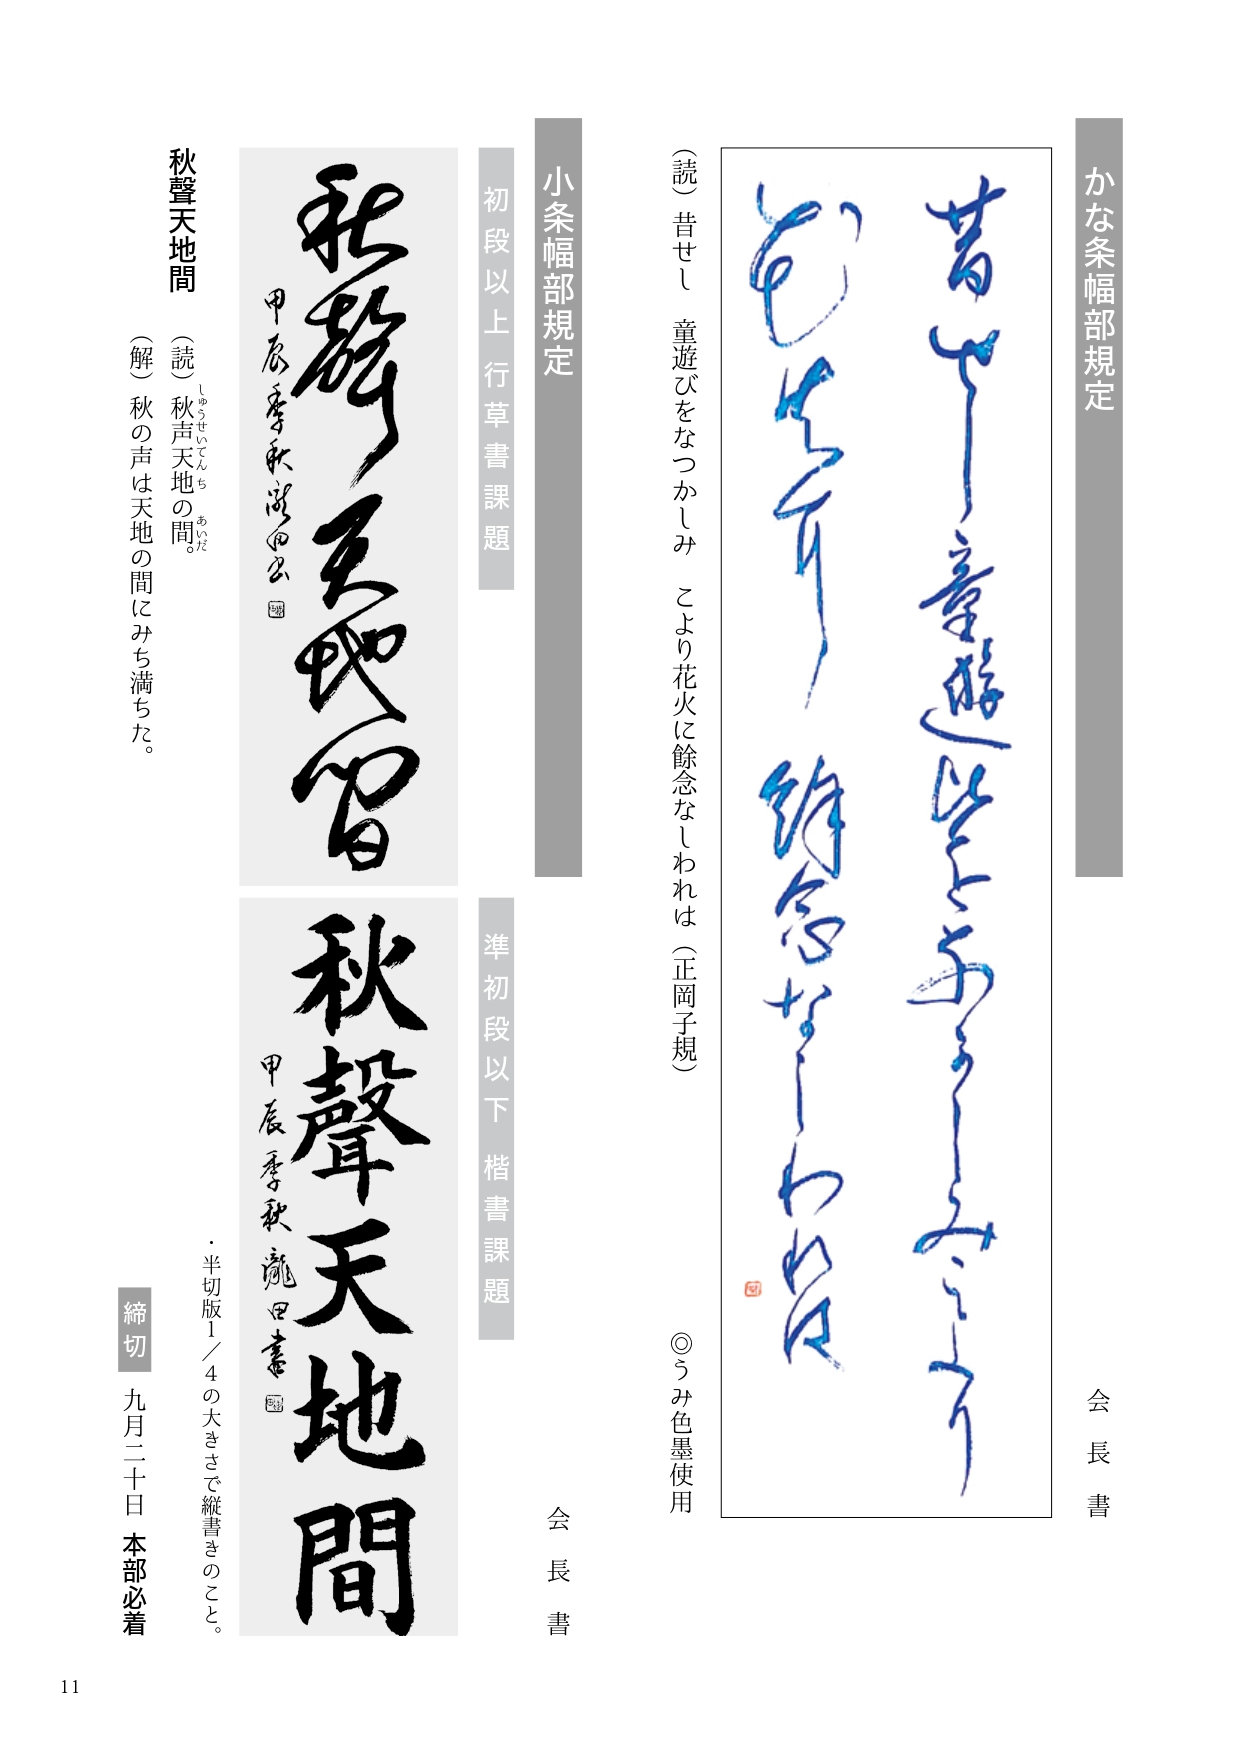 かな条幅部規定
会長書
昔せし童遊びをなつかしみこより
花火に餘念なしわれは
(読) 昔せし 童遊びをなつかしみ こより花火に餘念なしわれは (正岡子規)
◎うみ色墨使用
小条幅部規定
会長書
初段以上 行草書課題
秋聲天地間
甲辰季秋瀧田書
準初段以下 楷書課題
秋聲天地間
甲辰季秋瀧田書
・半切版1/4の大きさで縦書きのこと。
秋聲天地間
(読) 秋声天地の間。
しゅうせいてんち あいだ
(解) 秋の声は天地の間にみち満ちた。
締切 九月二十日 本部必着
11